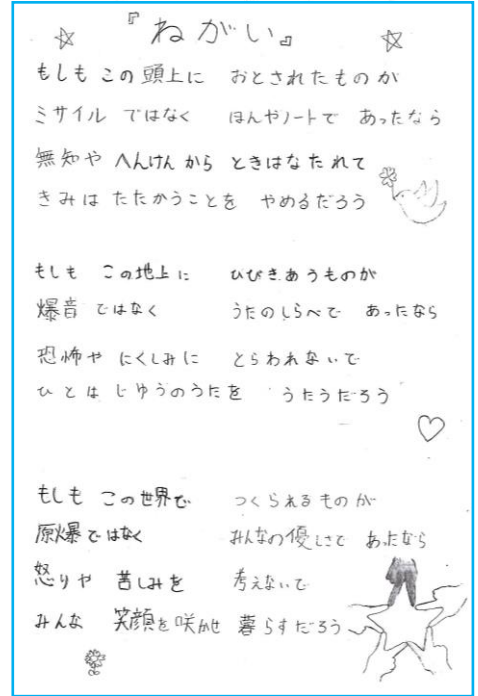 『ねがい』
もしも この頭上に おとされたものが
ミサイル ではなく ほんやノートで あったなら
無知や へんけんから ときはなたれて
きみは たたかうことを やめるだろう
もしも この地上に ひびきあうものが
爆音ではなく うたのしらべで あったなら
恐怖や にくしみに とらわれないで
ひとは じゆうのうたを うたうだろう
もしも この世界で つくられるものが
原爆ではなく みんなの優しさで あったなら
怒りや 苦しみを 考えないで
みんな 笑顔を咲かせ 暮らすだろう